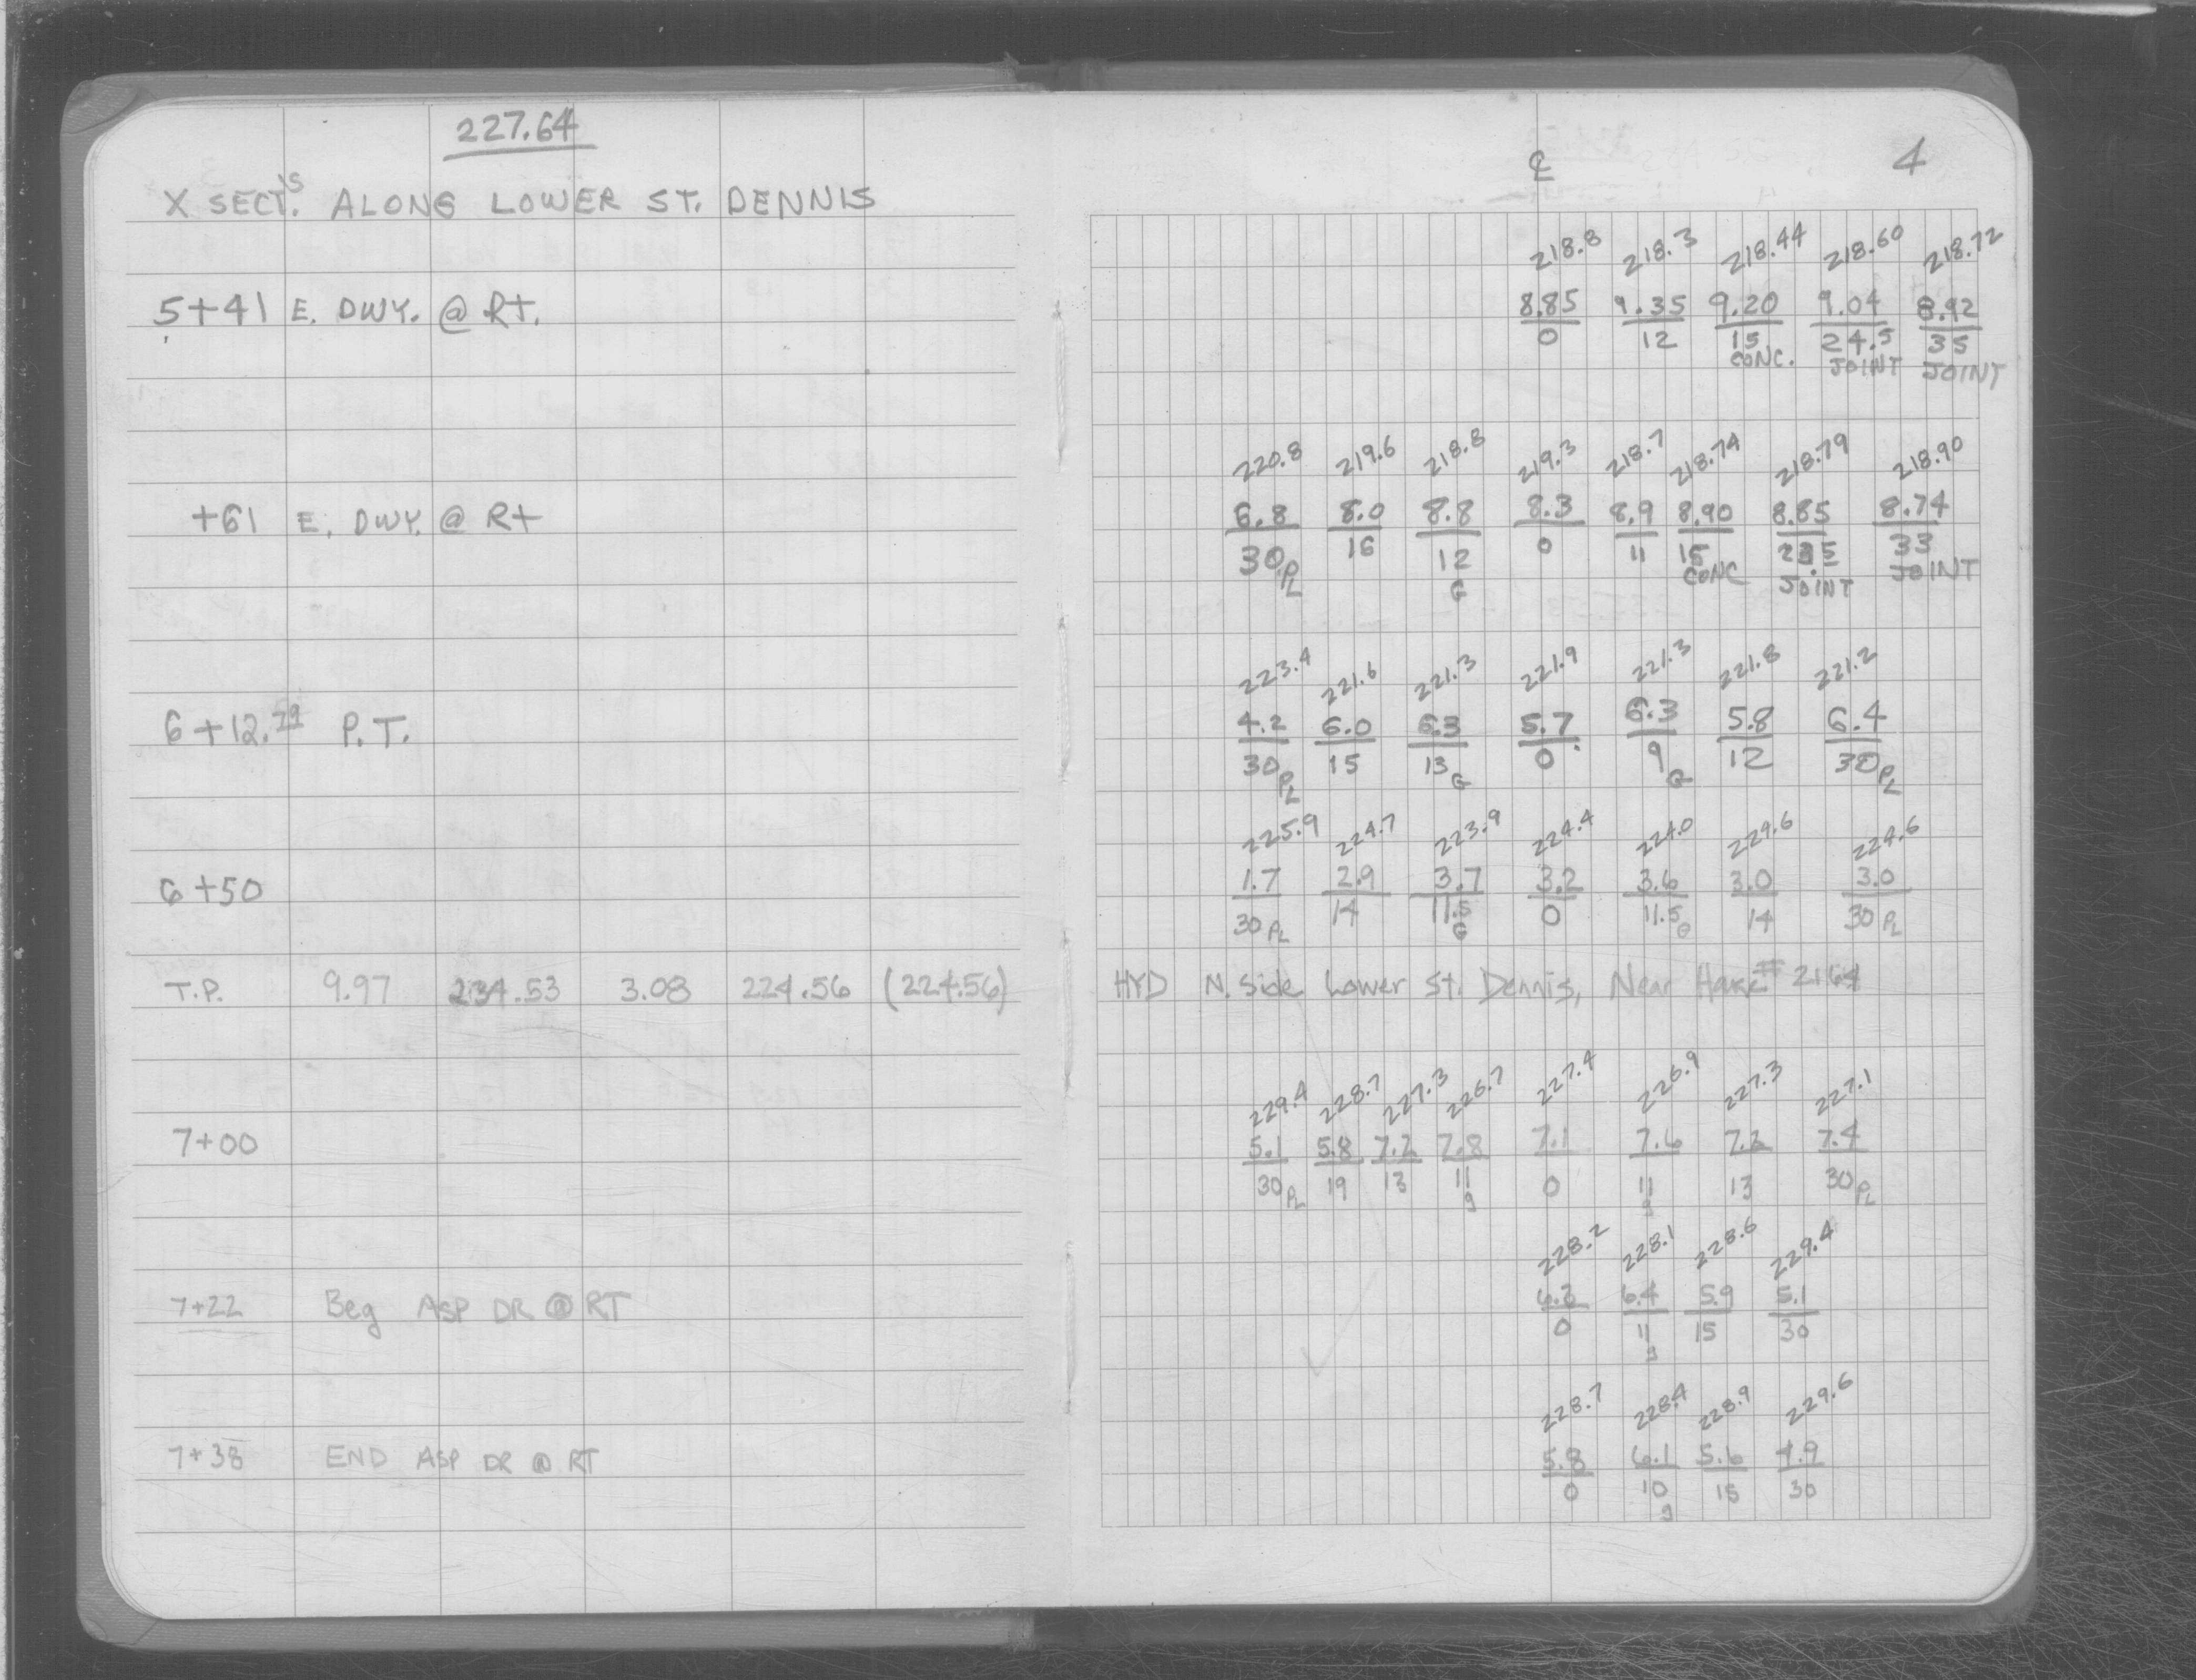 227.64
X SECT.'S ALONG LOWER ST. DENNIS
℄ 4
218.8 218.3 218.44 218.60 218.72
5+41 E. DWY. @ RT. 8.85 9.35 9.20 9.04 8.92
0 12 15 24.5 35
CONC. JOINT JOINT
220.8 219.6 218.8 219.3 218.7 218.74 218.79 218.90
+61 E. DWY. @ Rt 6.8 8.0 8.8 8.3 8.9 8.90 8.85 8.74
30 PL 16 12 0 11 15 23.5 33
G CONC JOINT JOINT
223.4 221.6 221.3 221.9 221.3 221.8 221.2
6+12.79 P.T. 4.2 6.0 6.3 5.7 6.3 5.8 6.4
30 PL 15 13 G 0 9 G 12 30 PL
225.9 224.7 223.9 224.4 224.0 224.6 224.6
6+50 1.7 2.9 3.7 3.2 3.6 3.0 3.0
30 PL 14 11.5 G 0 11.5 G 14 30 PL
T.P. 9.97 234.53 3.08 224.56 (224.56) HYD N. Side Lower St. Dennis, Near House # 2164
229.4 228.7 227.3 226.7 227.4 226.9 227.3 227.1
7+00 5.1 5.8 7.2 7.8 7.1 7.6 7.2 7.4
30 PL 19 13 11 g 0 11 g 13 30 PL
228.2 228.1 228.6 229.4
7+22 Beg ASP DR @ RT 6.3 6.4 5.9 5.1
0 11 g 15 30
228.7 228.4 228.9 229.6
7+38 END ASP DR @ RT 5.8 6.1 5.6 4.9
0 10 g 15 30